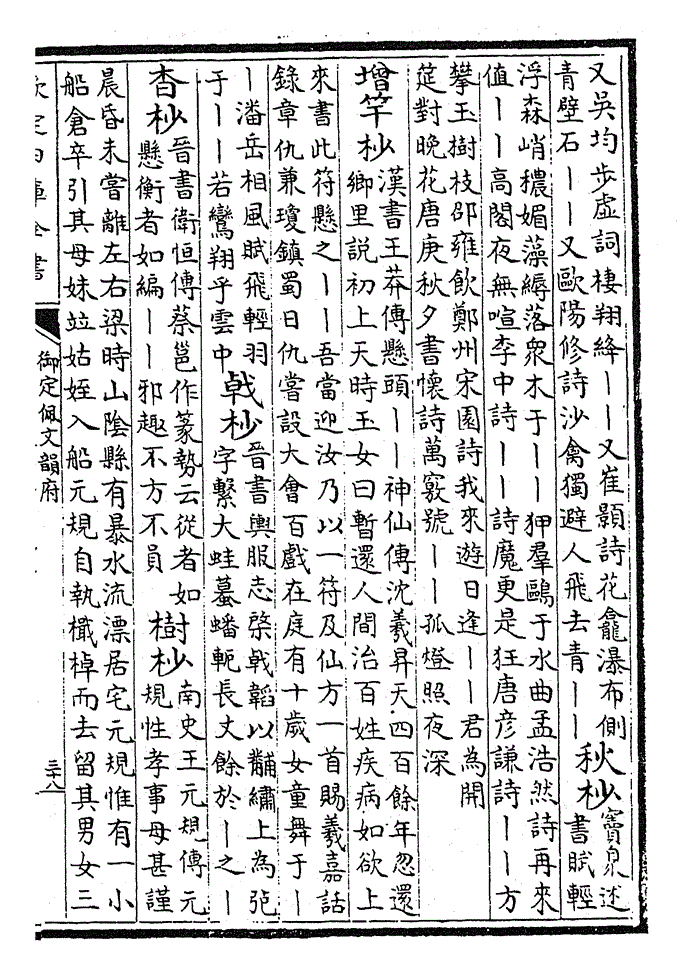 又吳均步虛詞棲翔絳丨丨又崔顥詩花龕瀑布側
青壁石丨丨又歐陽修詩沙禽獨避人飛去青丨丨
秋杪
竇泉述
書賦輕
浮森峭穠媚藻縟落衆木于丨丨狎羣鷗于水曲孟浩然詩再來
值丨丨高閣夜無喧李中詩丨丨詩魔更是狂唐彦謙詩丨丨方
攀玉樹枝邵雍飲鄭州宋園詩我來遊日逢丨丨君為開
筵對晚花唐庚秋夕書懷詩萬竅號丨丨孤燈照夜深
增竿杪
漢書王莽傳懸頭丨丨神仙傳沈羲昇天四百餘年忽還
鄉里説初上天時玉女曰暫還人間治百姓疾病如欲上
來書此符懸之丨丨吾當迎汝乃以一符及仙方一首賜羲嘉話
錄章仇兼瓊鎮蜀日仇嘗設大會百戲在庭有十歲女童舞于丨
丨潘岳相風賦飛輕羽
于丨丨若鸞翔乎雲中
戟杪
晉書輿服志棨戟韜以黼繡上為
字繫大蛙蟇蟠軛長丈餘於丨之丨
杳杪
晉書衛恒傳蔡邕作篆勢云從者如
懸衡者如編丨丨邪趣不方不員
樹杪
南史王元規傳元
規性孝事母甚謹
晨昏未嘗離左右梁時山陰縣有暴水流漂居宅元規惟有一小
船倉卒引其母妹竝姑姪入船元規自執檝棹而去留其男女三
欽定四庫全書
御定佩文韻府
三十八